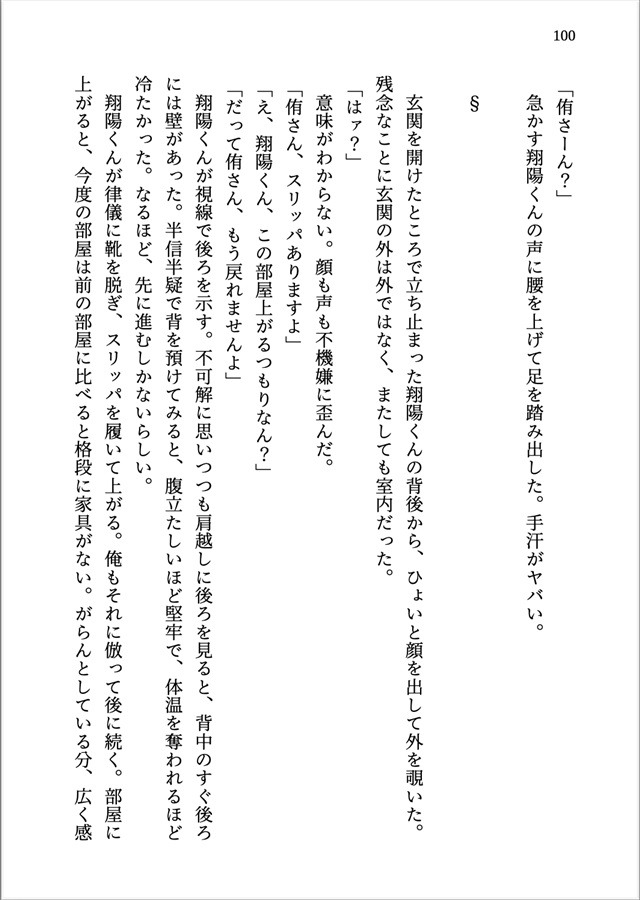 100
「侑さーん？」
急かす翔陽くんの声に腰を上げて足を踏み出した。手汗がヤバい。
§
玄関を開けたところで立ち止まった翔陽くんの背後から、ひょいと顔を出して外を覗いた。
残念なことに玄関の外は外ではなく、またしても室内だった。
「はァ？」
意味がわからない。顔も声も不機嫌に歪んだ。
「侑さん、スリッパありますよ」
「え、翔陽くん、この部屋上がるつもりなん？」
「だって侑さん、もう戻れませんよ」
翔陽くんが視線で後ろを示す。不可解に思いつつも肩越しに後ろを見ると、背中のすぐ後ろ
には壁があった。半信半疑で背を預けてみると、腹立たしいほど堅牢で、体温を奪われるほど
冷たかった。なるほど、先に進むしかないらしい。
翔陽くんが律儀に靴を脱ぎ、スリッパを履いて上がる。俺もそれに倣って後に続く。部屋に
上がると、今度の部屋は前の部屋に比べると格段に家具がない。がらんとしている分、広く感